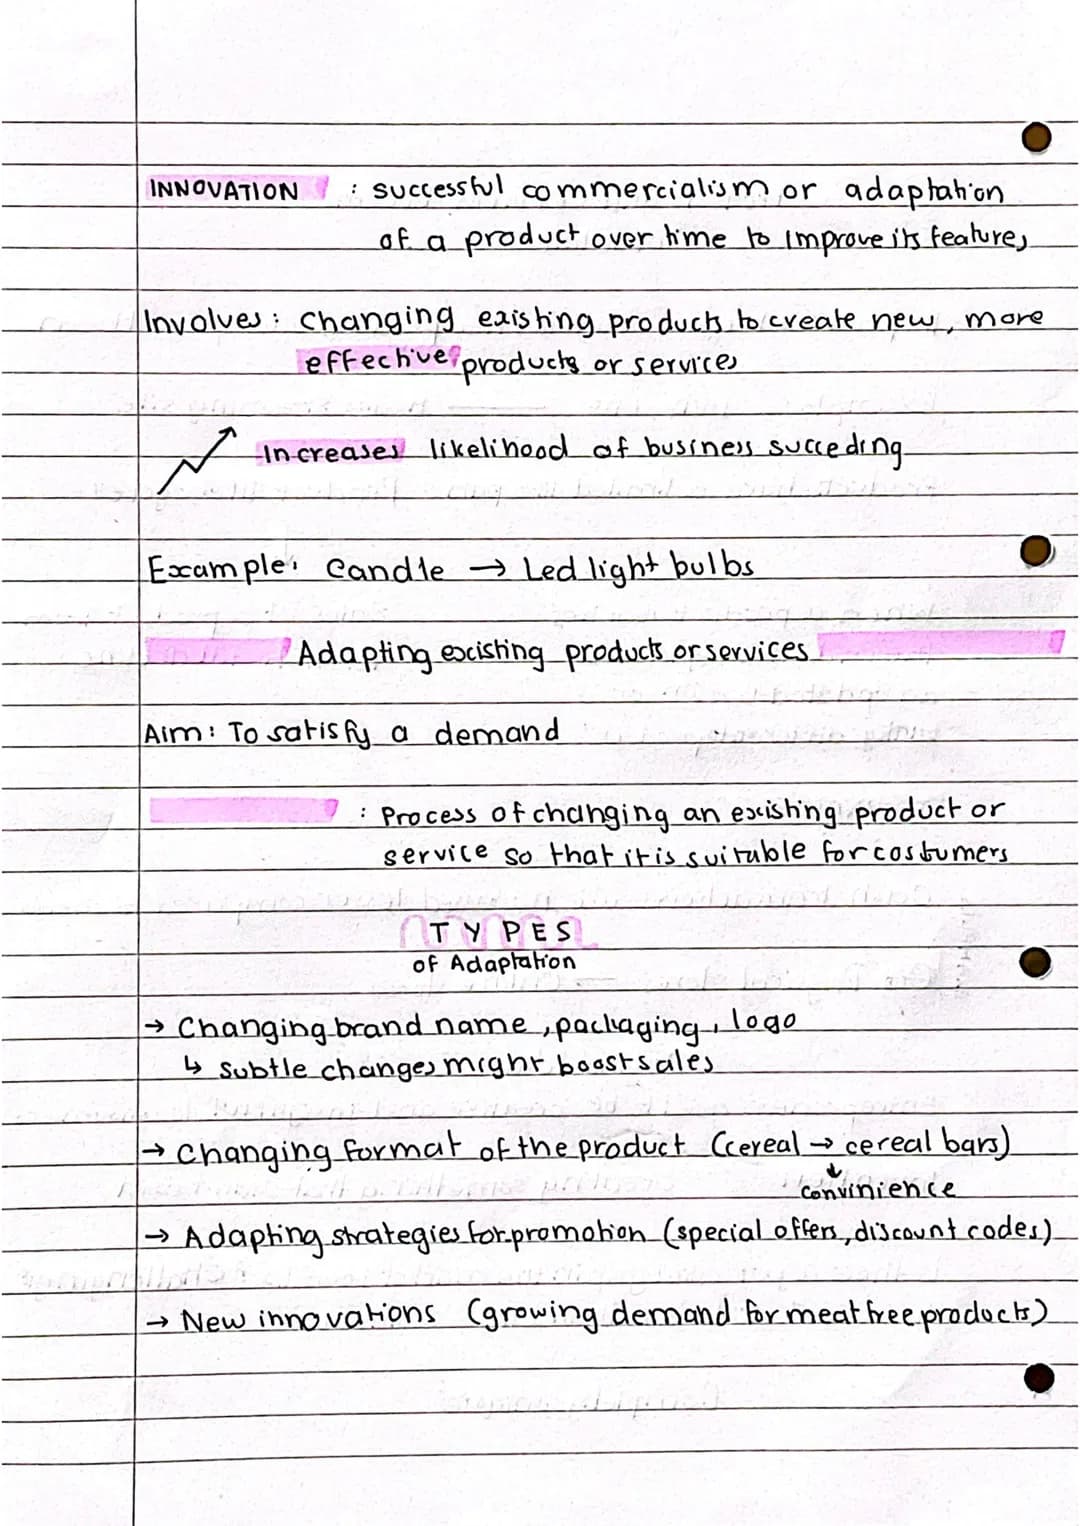 INNOVATION : successful commercialism or adaptation
of a product over time to improve its features
Involves : changing existing products to create new, more
effective products or services
Increases likelihood of business succeding
Example: Candle → Led light bulbs
Adapting excisting products or services
Aim : To satisfy a demand
: Process of changing an excisting product or
service so that it is suitable for costumers
TYPES
of Adaptation
→ Changing brand name, packaging, logo
↳ subtle changes might boost sales
→ Changing format of the product (cereal → cereal bars)
↓
convinience
→ Adapting strategies for promotion (special offers, discount codes)
→ New innovations (growing demand for meat free products)